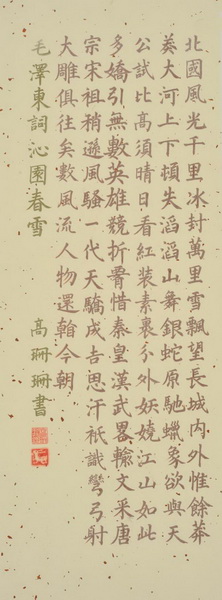 北國風光千里冰封萬里雪飄望長城内外惟餘莽
莽大河上下頓失滔滔山舞銀蛇原馳蠟象欲與天
公試比高須晴日看紅装素裹分外妖嬈江山如此
多嬌引無數英雄競折腰惜秦皇漢武畧輸文采唐
宗宋祖稍遜風騷一代天驕成吉思汗衹識彎弓射
大雕俱往矣數風流人物還看今朝
毛澤東詞沁園春雪
高珊珊書